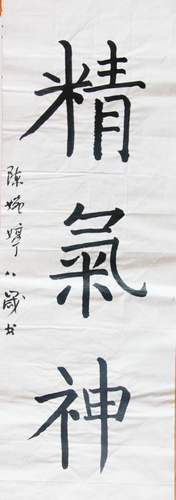 精氣神
陳婉婷八歲书